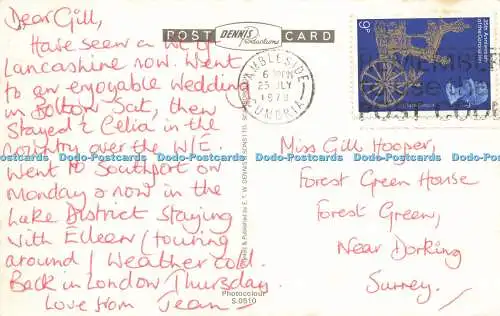 POST CARD
DENNIS
Productions
Dear Gill,
Have seen a lot of
Lancashire now. Went
to an enjoyable wedding
in Bolton Sat, then
Stayed č Celia in the
country over the W/E.
Went to Southport on
Monday & now in the
Lake District staying
with Eileen (touring
around) Weather cold.
Back in London Thursday.
Love from Jean
AMBLESIDE
6 PM
25 JLY
1978
CUMBRIA
9P
25th Anniversary
of the Coronation
REMEMBER
use the
POST CODE
Miss Gill Hooper,
Forest Green House
Forest Green,
Near Dorking
Surrey.
& Published by E. T. W. DENNIS & SONS LTD. SCARBOROUGH
Photocolour
S.0510
Dodo-Postcards Dodo-Postcards Dodo-Postcards Dodo-Postcards Dodo-Postcards Dodo-Postcards